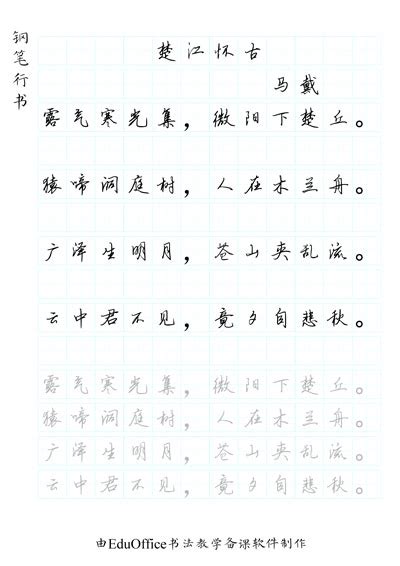 钢笔行书
楚江怀古
马戴
露气寒光集，微阳下楚丘。
猿啼洞庭树，人在木兰舟。
广泽生明月，苍山夹乱流。
云中君不见，竟夕自悲秋。
露气寒光集，微阳下楚丘。
猿啼洞庭树，人在木兰舟。
广泽生明月，苍山夹乱流。
云中君不见，竟夕自悲秋。
由EduOffice书法教学备课软件制作